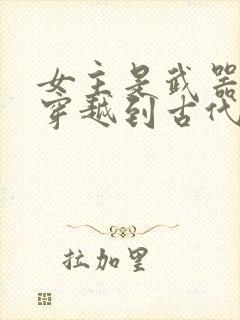 女主是武器
穿越到古代
拉加里